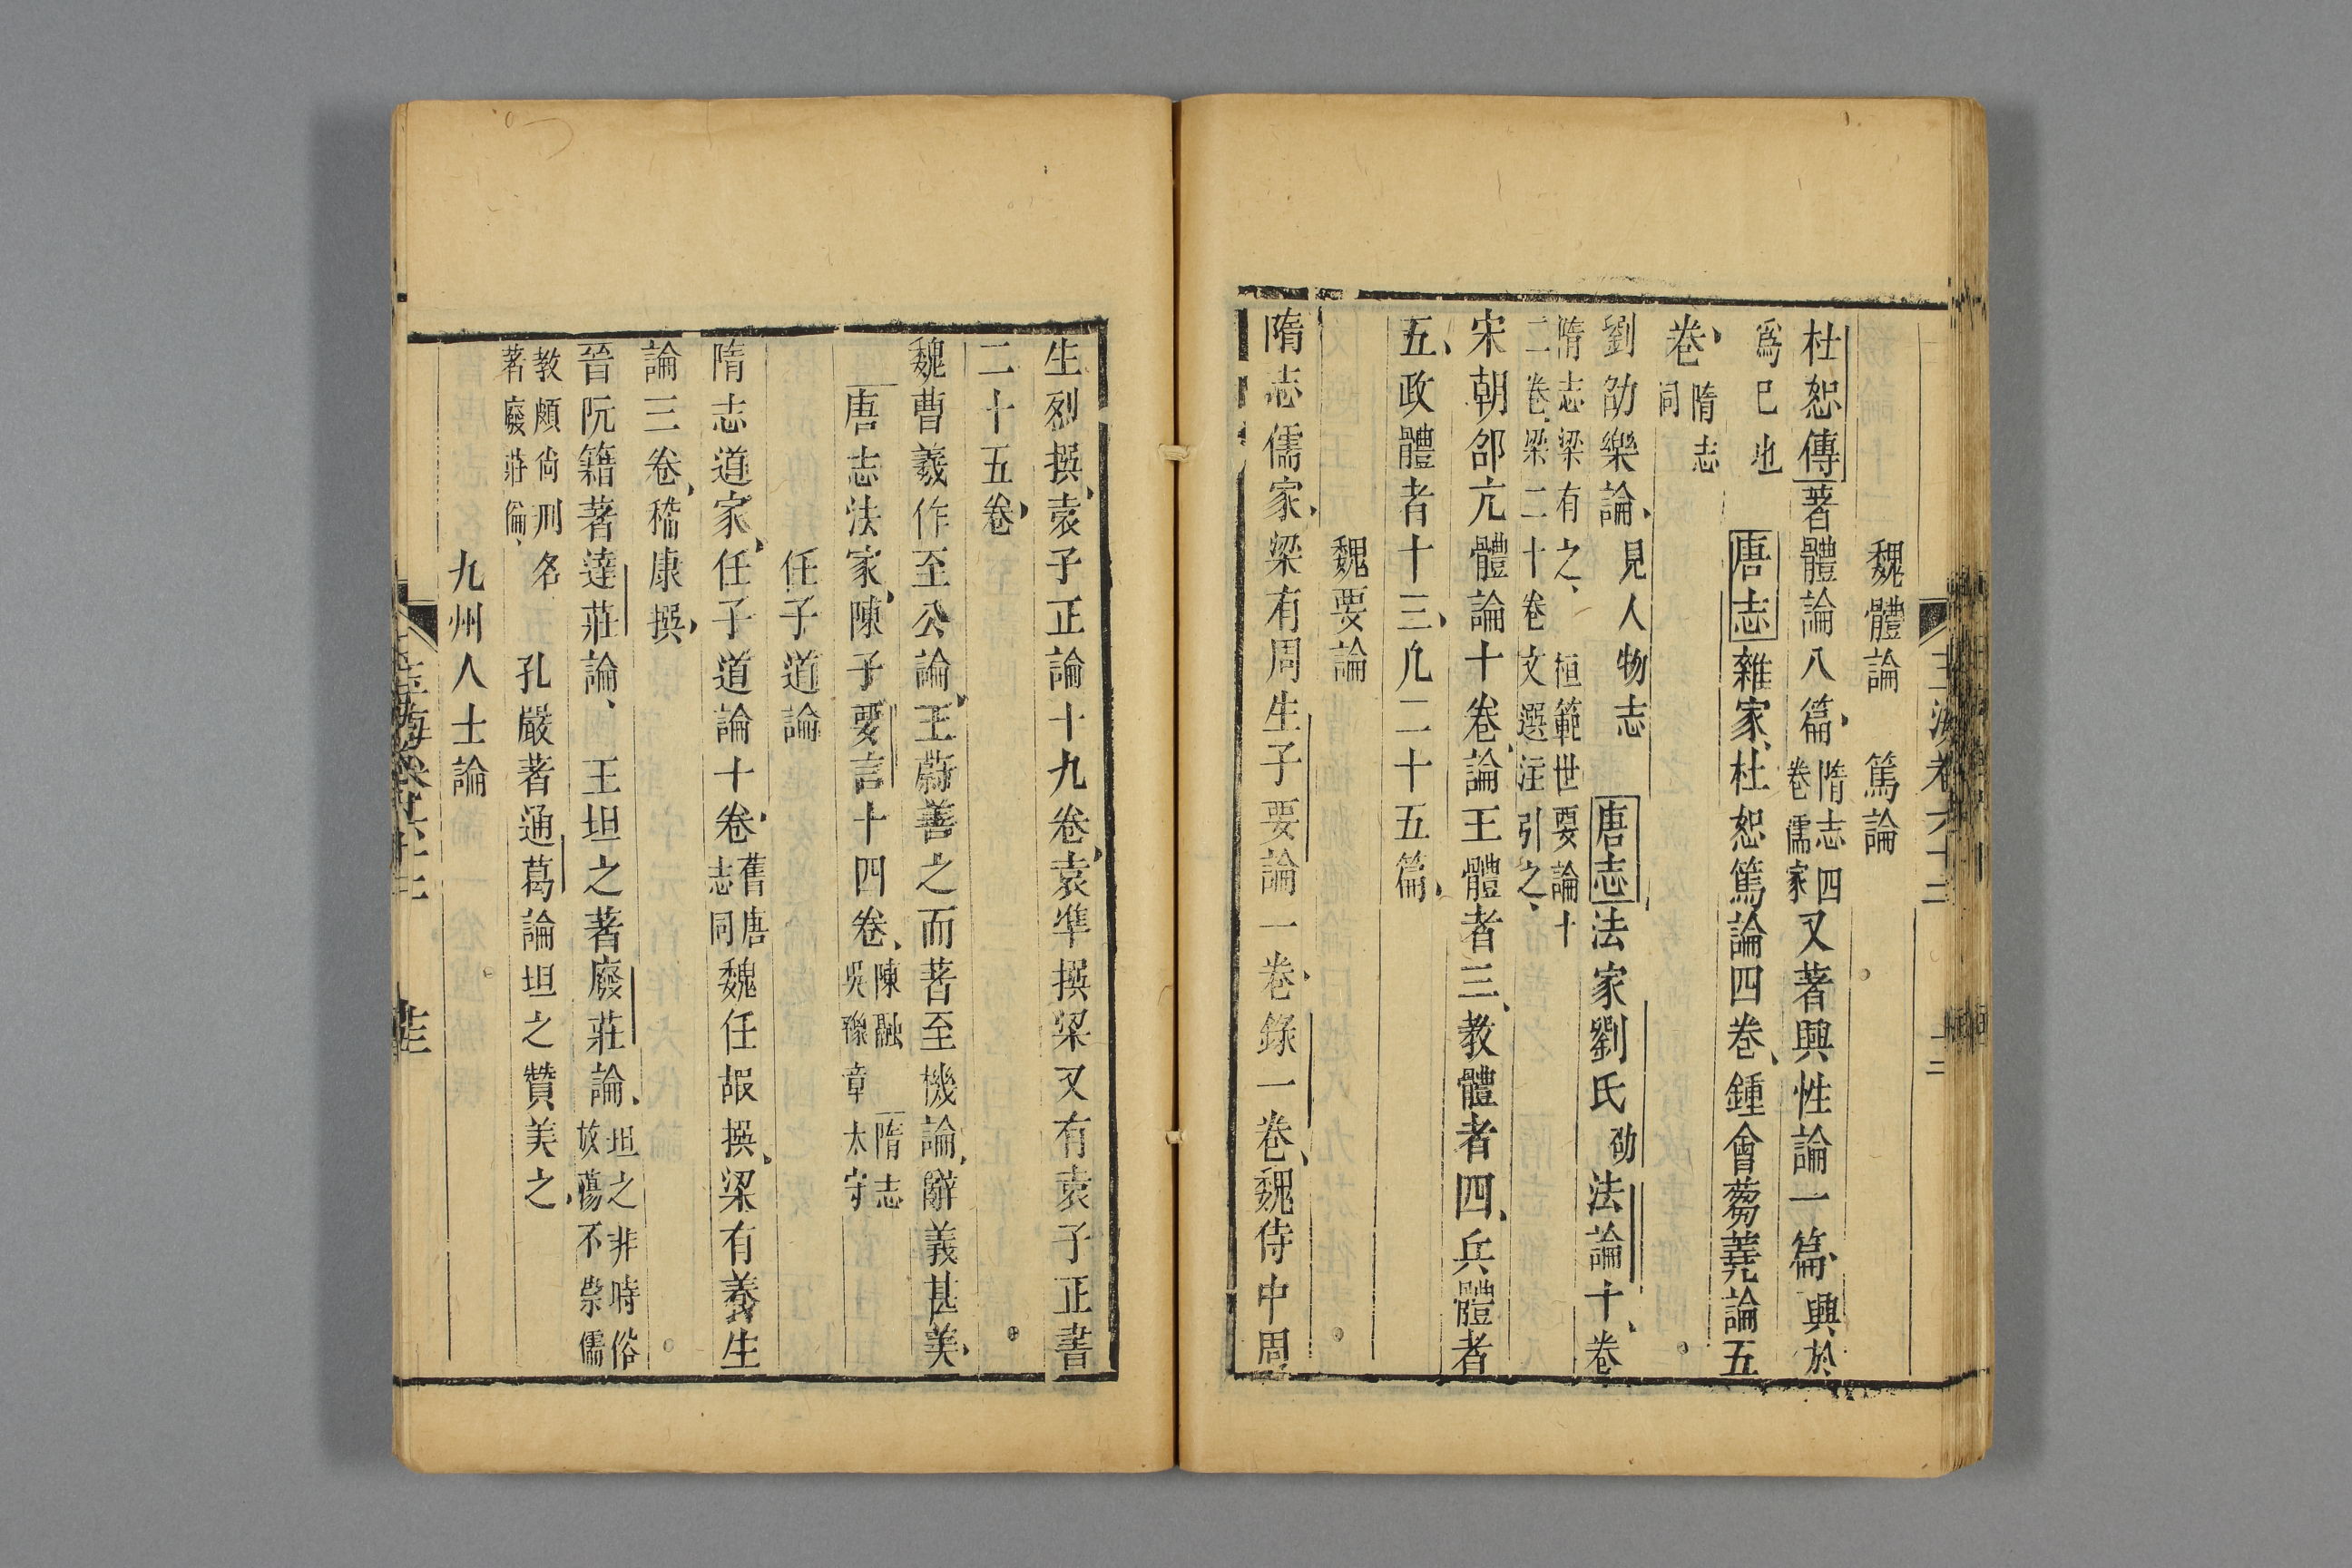 玉海卷六十二
魏體論 篤論
杜恕傳著體論八篇隋志四卷儒家又著興性論一篇興於
爲己也 唐志雜家杜恕篤論四卷鍾會蒭蕘論五
卷隋志同
劉劭樂論見人物志 唐志法家劉氏劭法論十卷
隋志梁有之 桓範世要論十
二卷梁二十卷文選注引之
宋朝郃亢體論十卷論王體者三教體者四兵體者
五政體者十三凡二十五篇
魏要論
隋志儒家梁有周生子要論一卷錄一卷魏侍中周
生烈撰袁子正論十九卷袁準撰梁又有袁子正書
二十五卷
魏曹羲作至公論王蔚善之而著至機論辭義甚美
唐志法家陳子要言十四卷陳融 隋志吳豫章太守
任子道論
隋志道家任子道論十卷舊唐志同魏任嘏撰梁有養生
論三卷嵇康撰
晉阮籍著達莊論 王坦之著廢莊論坦之非時俗放蕩不崇儒
教頗尚刑名
著廢莊倫 孔嚴著通葛論坦之贊美之
九州人士論
玉海卷六十二